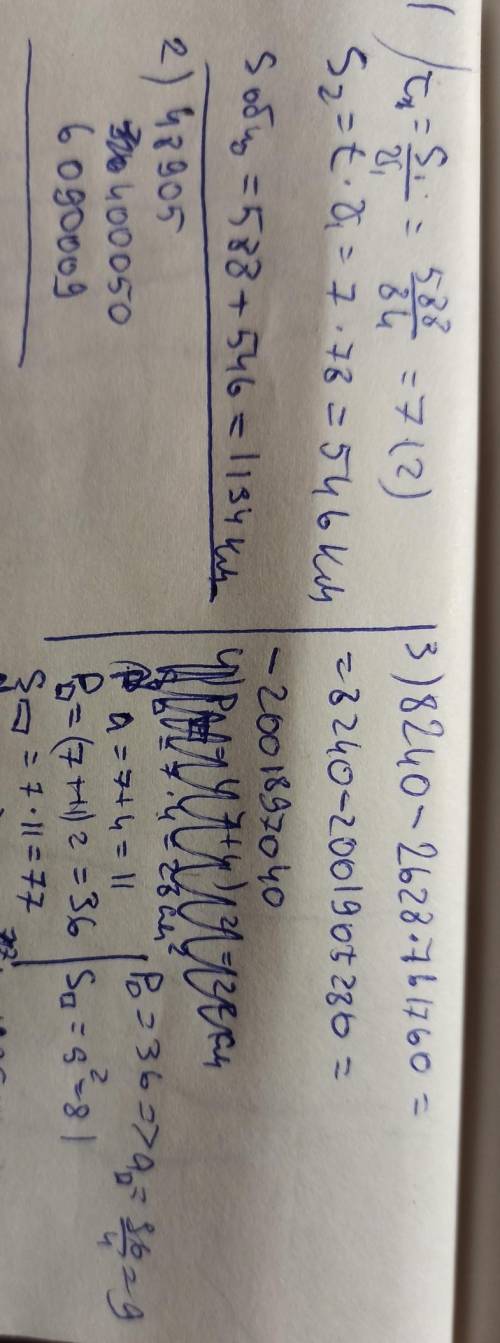 1) t₁ = S₁/v₁ = 588/84 = 7 (2)
S₂ = t · v₁ = 7 · 78 = 546 км
Sобщ = 588 + 546 = 1134 км
2) 48905
400050
6090009
3) 8240 - 2628 · 761760 =
= 8240 - 2001905280 =
- 2001897040
4)
a = 7+4 = 11
P▭ = (7+11)2 = 36
S▭ = 7 · 11 = 77
P□ = 36 => a□ = 36/4 = 9
S□ = 9² = 81